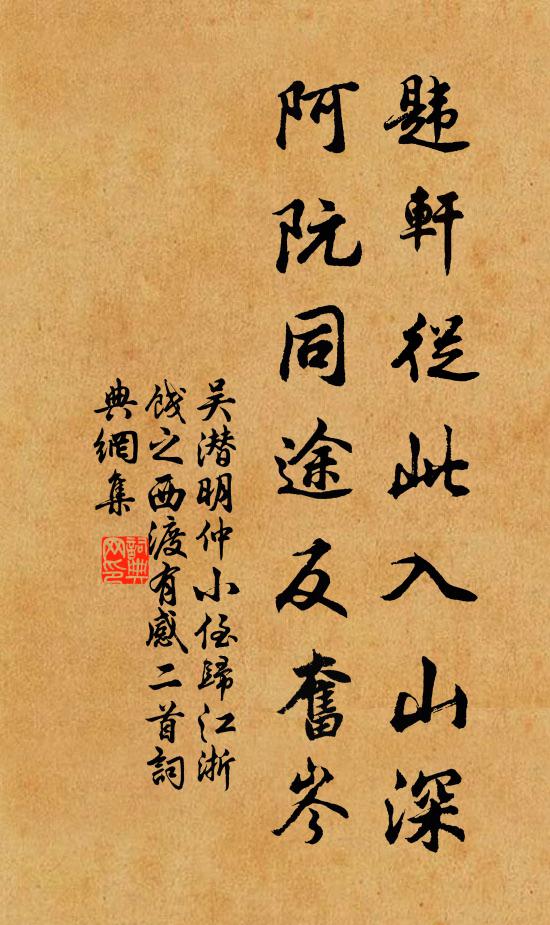 韙軒從此入山深
阿阮同途反奮岑
吴潛明仲小侄歸江浙
餞之西渡有感二首詞
典網集
詞典网印